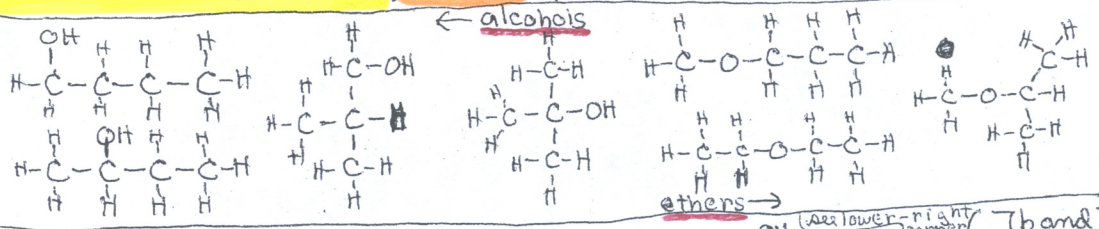 ← alcohols
OH H H H
H-C-C-C-C-H
H H H H
H OH H H
H-C-C-C-C-H
H H H H
H
H-C-OH
H
H-C-C-H
H
H-C-H
H
H
H-C-H
H
H-C-C-OH
H
H-C-H
H
H H H H
H-C-O-C-C-C-H
H H H H
H H H H
H-C-C-O-C-C-H
H H H H
ethers →
H H
C-H
H
H-C-O-C-H
H
H-C-H
H
(see lower-right
7b and